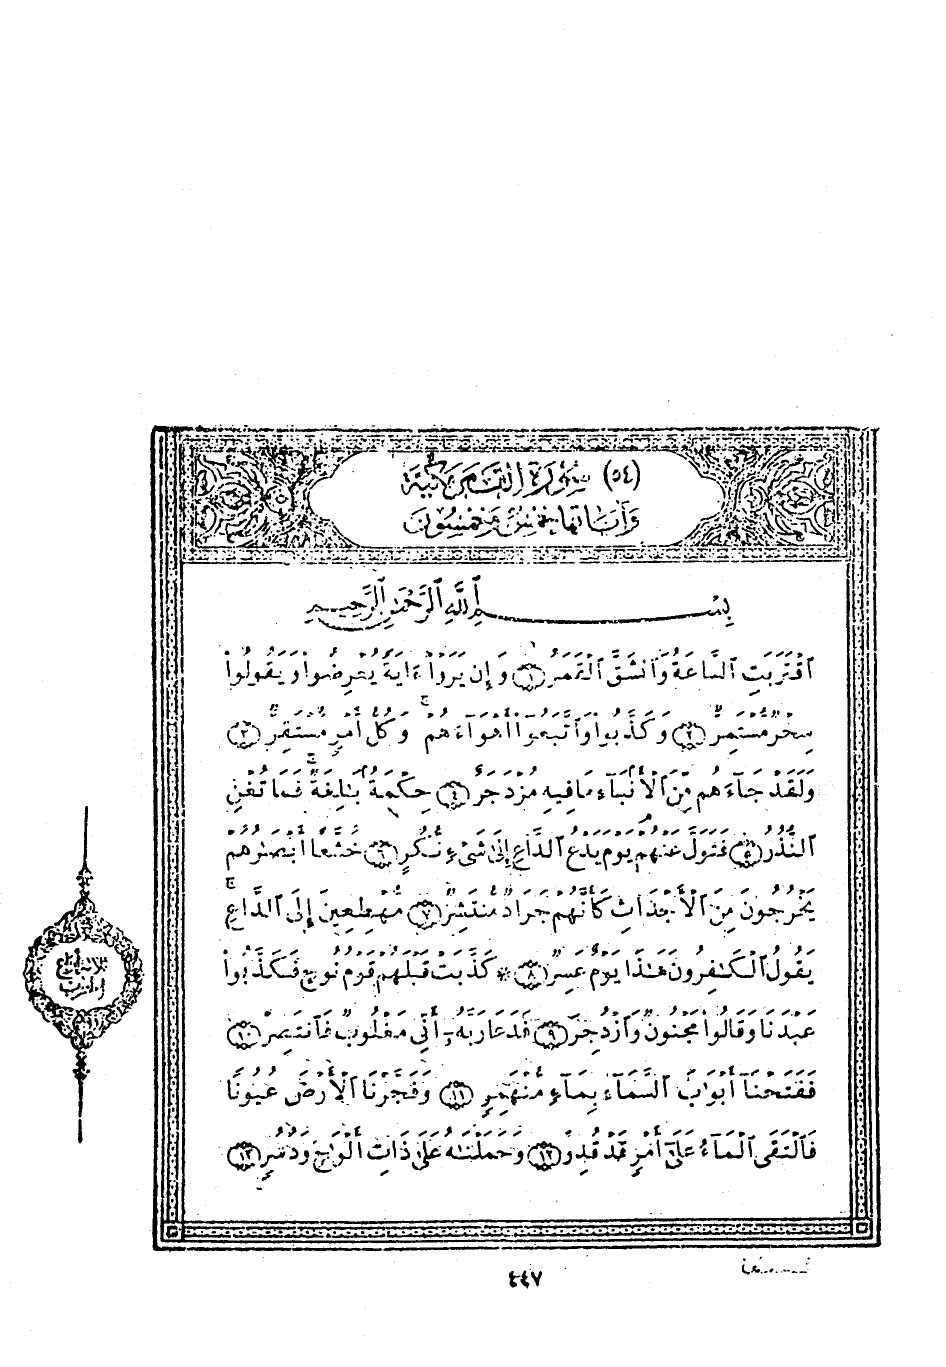 (٥٤) سُورَةُ القَمَرِ مَكِّيَّة
وَآيَاتُهَا خَمْسٌ وَخَمْسُونَ
بِسْمِ ٱللَّهِ ٱلرَّحْمَٰنِ ٱلرَّحِيمِ
ٱقْتَرَبَتِ ٱلسَّاعَةُ وَٱنشَقَّ ٱلْقَمَرُ ١ وَإِن يَرَوْا۟ ءَايَةً يُعْرِضُوا۟ وَيَقُولُوا۟
سِحْرٌ مُّسْتَمِرٌّ ٢ وَكَذَّبُوا۟ وَٱتَّبَعُوٓا۟ أَهْوَآءَهُمْ ۚ وَكُلُّ أَمْرٍ مُّسْتَقِرٌّ ٣
وَلَقَدْ جَآءَهُم مِّنَ ٱلْأَنۢبَآءِ مَا فِيهِ مُزْدَجَرٌ ٤ حِكْمَةٌۢ بَٰلِغَةٌ ۖ فَمَا تُغْنِ
ٱلنُّذُرُ ٥ فَتَوَلَّ عَنْهُمْ ۘ يَوْمَ يَدْعُ ٱلدَّاعِ إِلَىٰ شَىْءٍ نُّكُرٍ ٦ خُشَّعًا أَبْصَٰرُهُمْ
يَخْرُجُونَ مِنَ ٱلْأَجْدَاثِ كَأَنَّهُمْ جَرَادٌ مُّنتَشِرٌ ٧ مُّهْطِعِينَ إِلَى ٱلدَّاعِ ۖ
يَقُولُ ٱلْكَٰفِرُونَ هَٰذَا يَوْمٌ عَسِرٌ ٨ * كَذَّبَتْ قَبْلَهُمْ قَوْمُ نُوحٍ فَكَذَّبُوا۟
عَبْدَنَا وَقَالُوا۟ مَجْنُونٌ وَٱزْدُجِرَ ٩ فَدَعَا رَبَّهُۥٓ أَنِّى مَغْلُوبٌ فَٱنتَصِرْ ١٠
فَفَتَحْنَآ أَبْوَٰبَ ٱلسَّمَآءِ بِمَآءٍ مُّنْهَمِرٍ ١١ وَفَجَّرْنَا ٱلْأَرْضَ عُيُونًا
فَٱلْتَقَى ٱلْمَآءُ عَلَىٰٓ أَمْرٍ قَدْ قُدِرَ ١٢ وَحَمَلْنَٰهُ عَلَىٰ ذَاتِ أَلْوَٰحٍ وَدُسُرٍ ١٣
ثلاثة أرباع
الحزب
٤٤٧